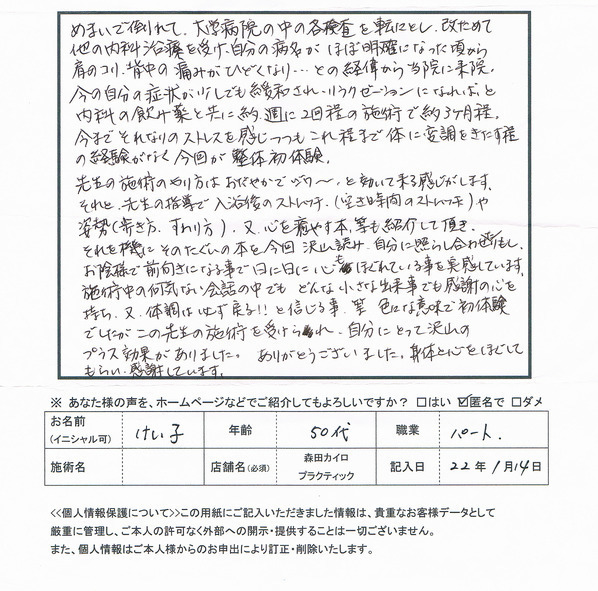 めまいで倒れて、大学病院の中の各検査を転々とし、改ためて
他の内科治療を受け、自分の病名がほぼ明確になった頃から
肩のコリ、背中の痛みがひどくなり…との経偉から当院に来院。
今の自分の症状が少しでも緩和され、リラクゼーションになればと
内科の飲み薬と共に約、週に2回程の施術で約3ヶ月程。
今までそれなりのストレスを感じつつもこれ程まで体に変調をきたす程
の経験がなく今回が整体初体験。
先生の施術のやり方はおだやかでジワ〜、と効いて来る感じがします。
それと、先生の指導で入浴後のストレッチ、(空き時間のストレッチ)や
姿勢(歩き方、すわり方)、又、心を癒やす本、等も紹介して頂き、
それを機にそのたぐいの本を今回沢山読み、自分に照らし合わせもし、
お陰様で前向きになる事で日に日に心もほぐれている事を実感しています。
施術中の何気ない会話の中でもどんな小さな出来事でも感謝の心を
持ち、又、体調は必ず戻る!!と信じる事、等色々な意味で初体験
でしたがこの先生の施術を受けられ、自分にとって沢山の
プラス効果がありました。ありがとうございました。身体と心をほぐして
もらい、感謝しています。
※ あなた様の声を、ホームページなどでご紹介してもよろしいですか? □はい ☑匿名で □ダメ
お名前 (イニシャル可) けい子 年齢 50代 職業 パート.
施術名 店舗名(必須) 森田カイロプラクティック 記入日 22年 1月14日
<<個人情報保護について>>この用紙にご記入いただきました情報は、貴重なお客様データとして
厳重に管理し、ご本人の許可なく外部への開示・提供することは一切ございません。
また、個人情報はご本人様からのお申出により訂正・削除いたします。